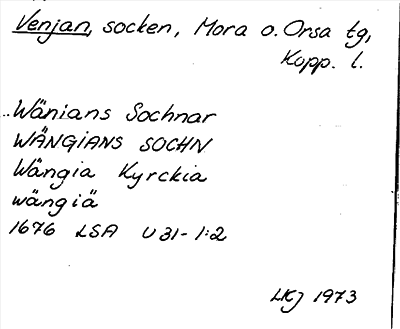 Venjan, socken, Mora o. Orsa tg,
Kopp. l.
Wänians Sochnar
WÄNGIANS SOCHN
Wängia Kyrckia
wängiä
1676 LSA U31-1:2
LKJ 1973